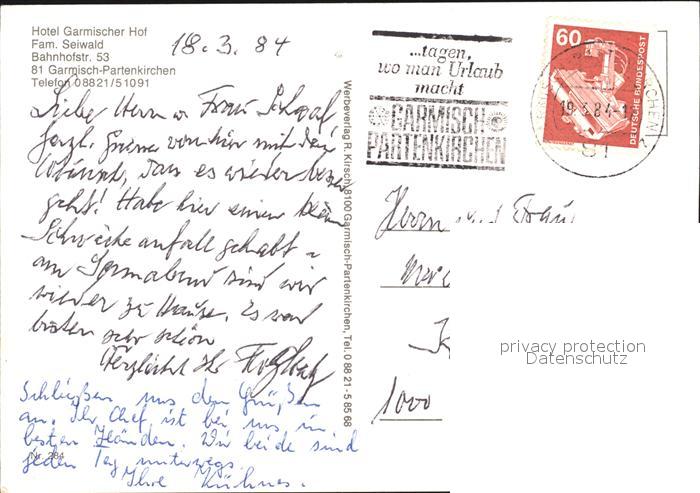 Hotel Garmischer Hof
Fam. Seiwald
Bahnhofstr. 53
81 Garmisch-Partenkirchen
Telefon 08821/51091
18.3.84
Liebe Herr u. Frau
herzl. Grüsse von hier mit dem
Wunsch, dass es wieder besser
geht! Habe hier einen kleinen
Schwächeanfall gehabt
am Sonnabend sind wir
wieder zu Hause. Es war
sehr schön
Herzlichst Ihr
Schließen uns den Grüßen
an. Ihr Chef ist bei uns in
besten Händen. Wir beide sind
jeden Tag unterwegs.
Ihre Kühnes.
Nr. 284
Werbeverlag R. Kirsch, 8100 Garmisch-Partenkirchen, Tel. 0 88 21 - 5 85 68
...tagen,
wo man Urlaub
macht
GARMISCH
PARTENKIRCHEN
60
DEUTSCHE BUNDESPOST
19.3.84
81
Herrn und Frau
1000
privacy protection
Datenschutz